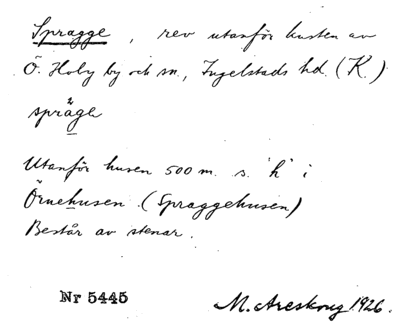 Spragge, rev utanför kusten av
Ö. Hoby by och sn., Ingelstads hd. (K.)
språga
Utanför husen 500 m. s. 'h' i
Örnehusen. (Spraggehusen)
Består av stenar.
Nr 5445
M. Areskoug 1926.